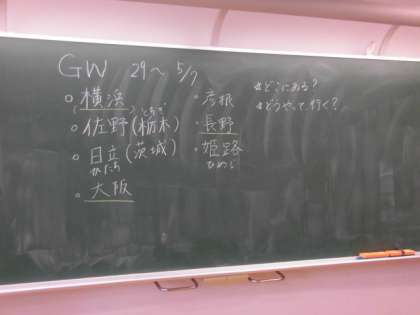 GW 29〜5/7
○横浜
○佐野(栃木)
とちぎ
○日立(茨城)
○大阪
・彦根
・長野
・姫路
ひめじ
☆どこにある?
☆どうやって行く?